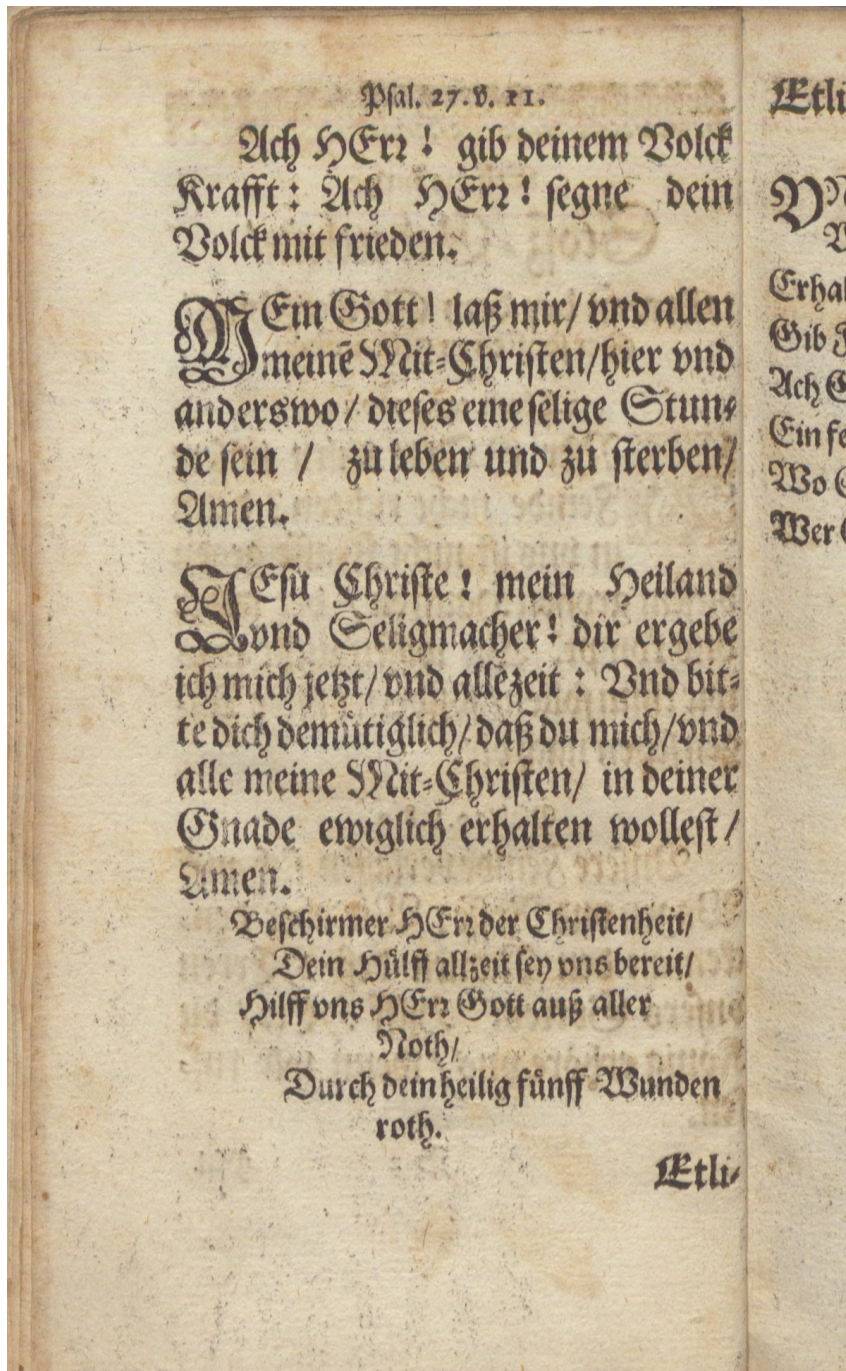 Psal. 27. v. 11.
Ach HErr! gib deinem Volck
Krafft: Ach HErr! segne dein
Volck mit frieden.
MEin Gott! laß mir/ vnd allen
meinē Mit-Christen/hier vnd
anderswo/ dieses eine selige Stun-
de sein / zu leben und zu sterben/
Amen.
JEsu Christe! mein Heiland
vnd Seligmacher! dir ergebe
ich mich jetzt/ vnd allezeit: Vnd bit-
te dich demütiglich/ daß du mich/vnd
alle meine Mit-Christen/ in deiner
Gnade ewiglich erhalten wollest/
Amen.
Beschirmer HErr der Christenheit/
Dein Hülff allzeit sey vns bereit/
Hilff vns HErr Gott auß aller
Noth/
Durch dein heilig fünff Wunden
roth.
Etli-
Etli
Erhal
Gib
Ach G
Ein fe
Wo
Wer